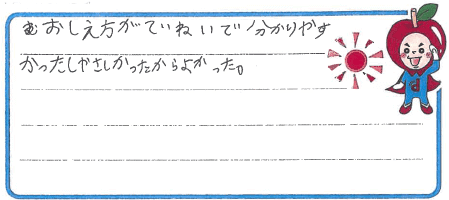 おしえ方がていねいで分かりやす
かったしやさしかったからよかった。
d